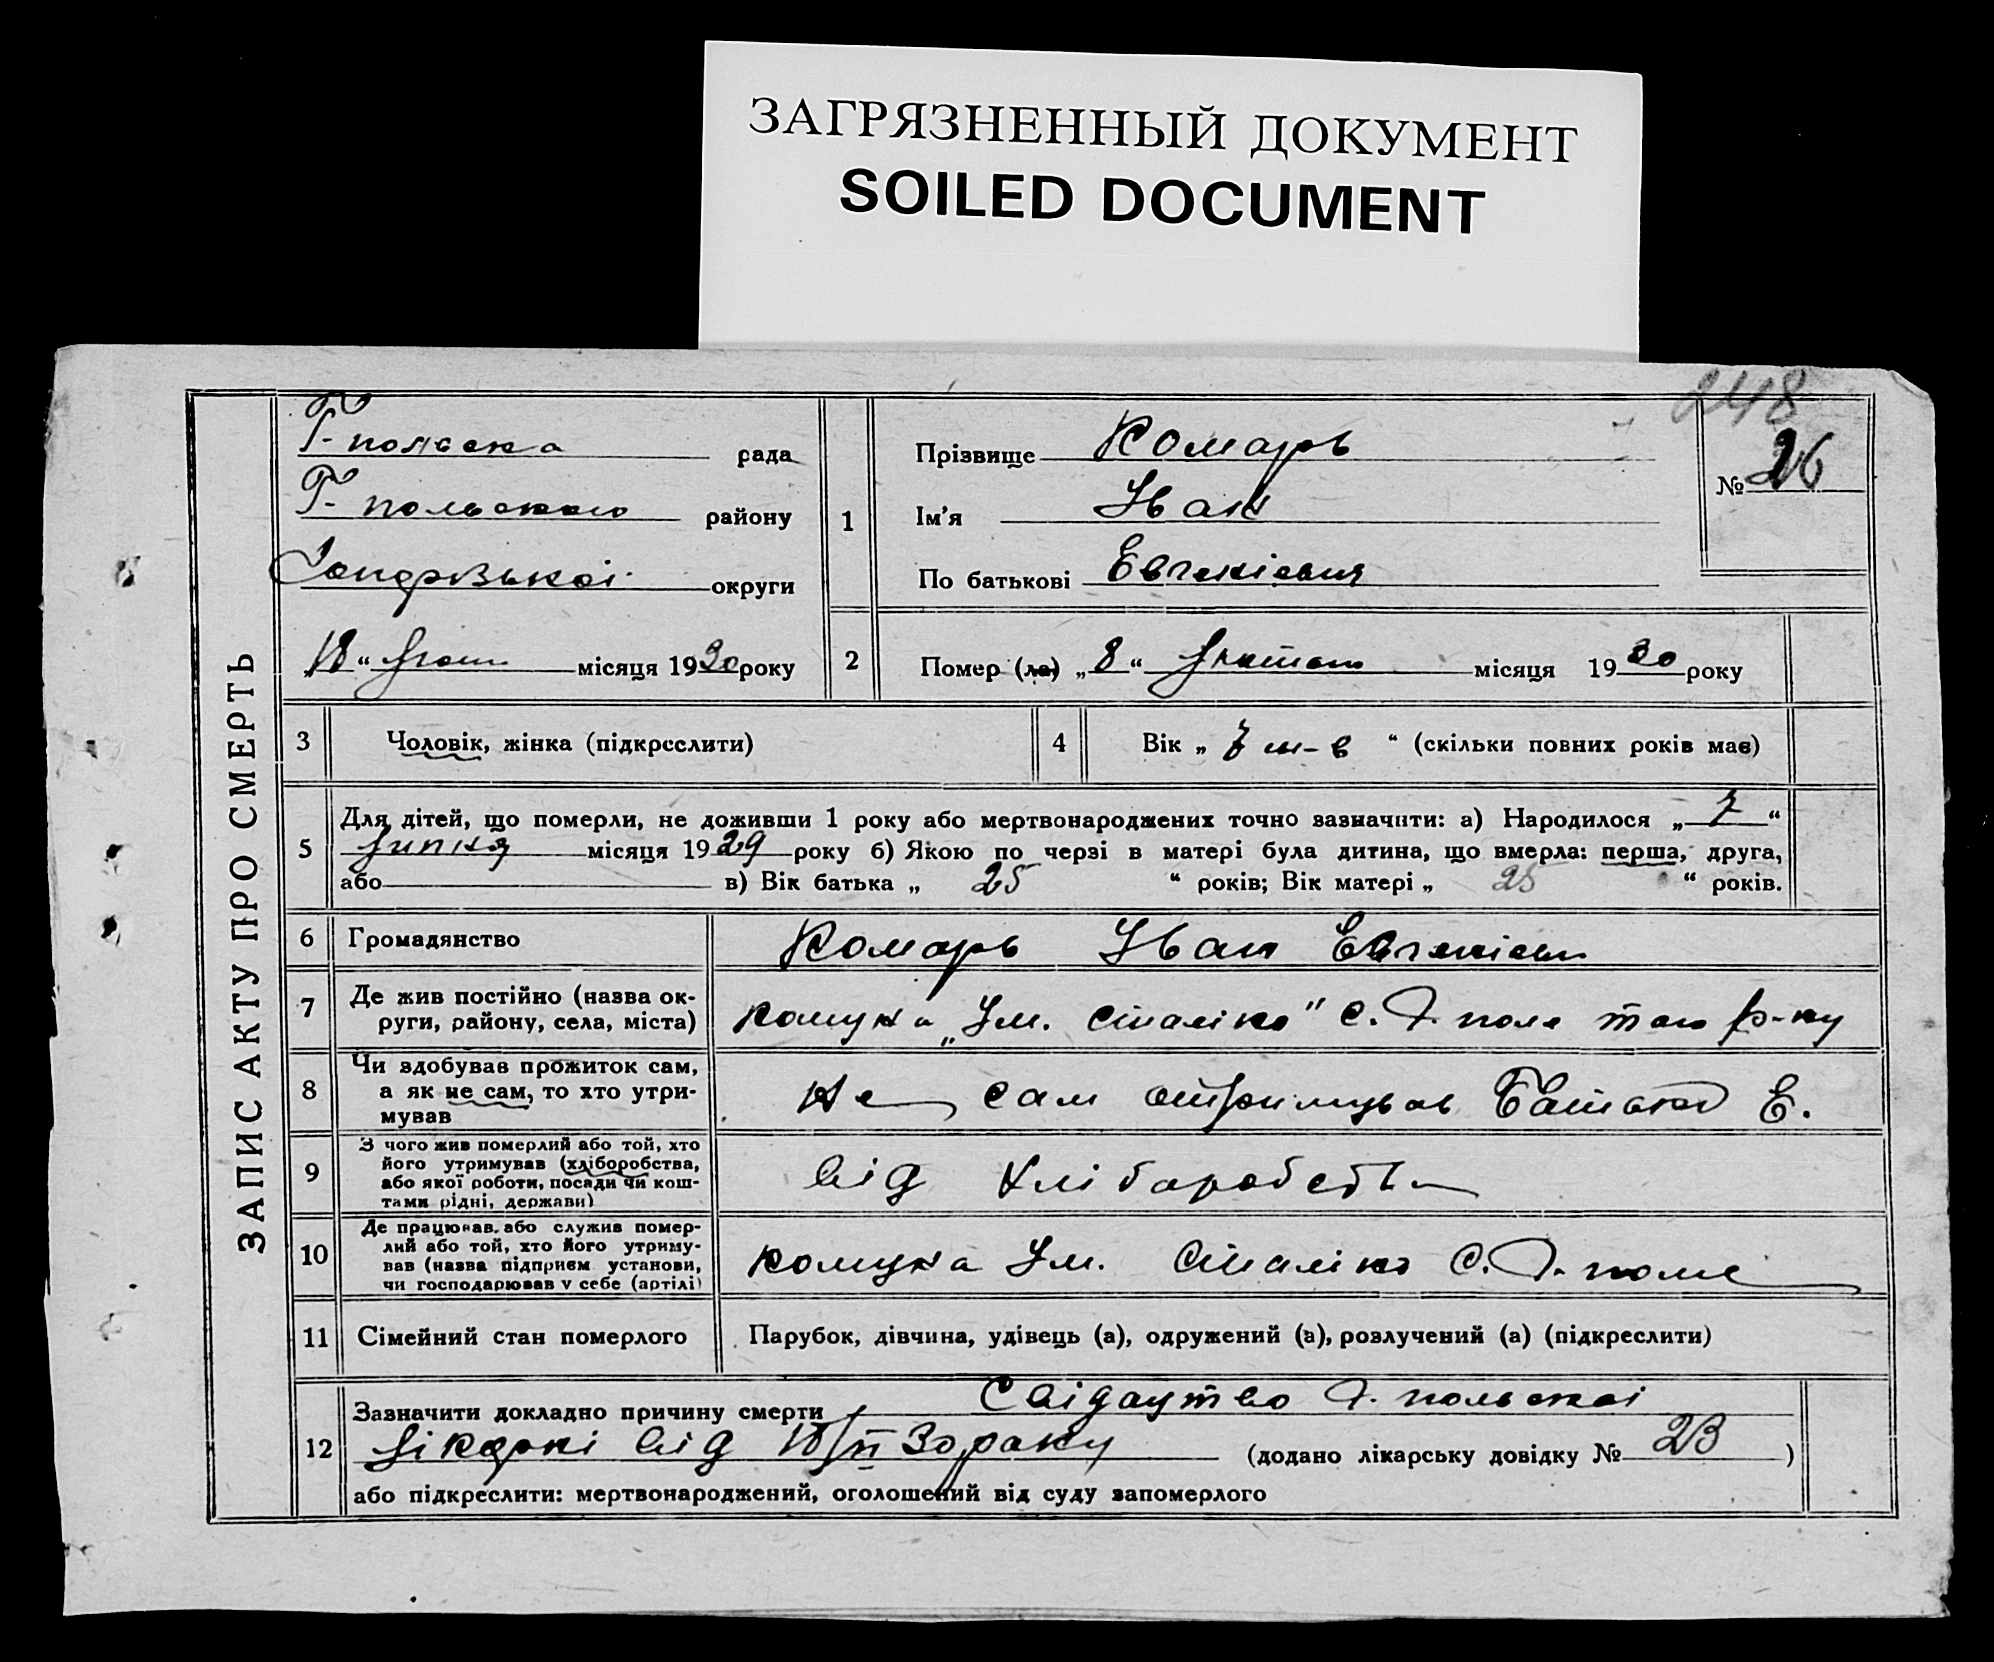 ЗАГРЯЗНЕННЫЙ ДОКУМЕНТ
SOILED DOCUMENT
ЗАПИС АКТУ ПРО СМЕРТЬ
248
Г-польска рада
Г-польського району
округи
„18“ місяця 1930 року
1
Прізвище Комарь
Ім'я Іван
По батькові Евгенієвич
№ 26
2 Помер (ла) „8“ лютого місяця 1930 року
3 Чоловік, жінка (підкреслити)
4 Вік „7 м-в“ (скільки повних років має)
5 Для дітей, що померли, не доживши 1 року або мертвонароджених точно зазначити: а) Народилося „7“
липня місяця 1929 року б) Якою по черзі в матері була дитина, що вмерла: перша, друга,
або в) Вік батька „25“ років; Вік матері „25“ років.
6 Громадянство Комарь Іван Евгенієвич
7 Де жив постійно (назва ок-
руги, району, села, міста) комуна „Ім. Сталіно" с. Г. поле того р-ну
8 Чи здобував прожиток сам,
а як не сам, то хто утри-
мував
Не сам отримував Батько Е.
9 З чого жив померлий або той, хто
його утримував (хліборобства,
або якої роботи, посади чи кош-
тами рідні, держави)
від Хліборобств
10 Де працював, або служив помер-
лий або той, хто його утриму-
вав (назва підприєм установи,
чи господарював у себе (артілі)
комуна Ім. Сталіно С. Г. поле
11 Сімейний стан померлого Парубок, дівчина, удівець (а), одружений (а), розлучений (а) (підкреслити)
12 Зазначити докладно причину смерти Свідоцтво Г. польскоі
лікарні від 18/II 30 року (додано лікарську довідку № 23)
або підкреслити: мертвонароджений, оголошений від суду запомерлого